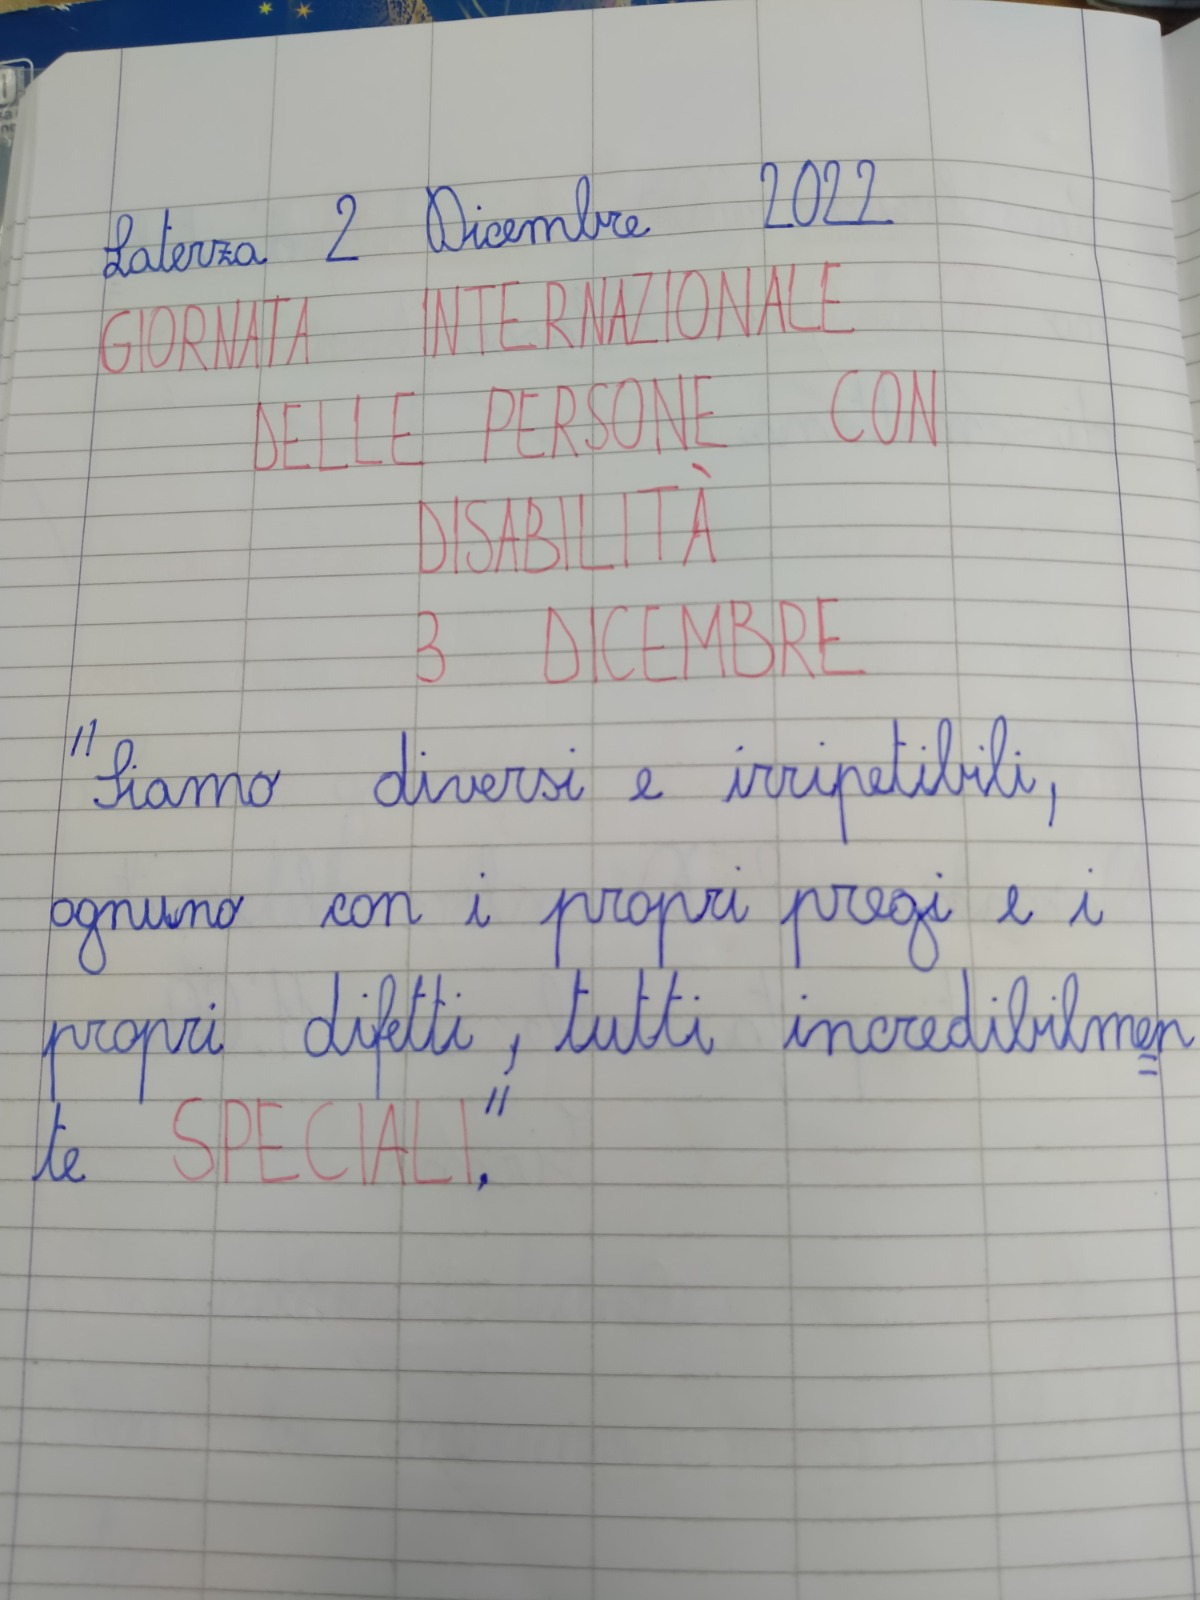 Laterza 2 Dicembre 2022
GIORNATA INTERNAZIONALE
DELLE PERSONE CON
DISABILITÀ
3 DICEMBRE
"Siamo diversi e irripetibili,
ognuno con i propri pregi e i
propri difetti, tutti incredibilmen=
te SPECIALI."